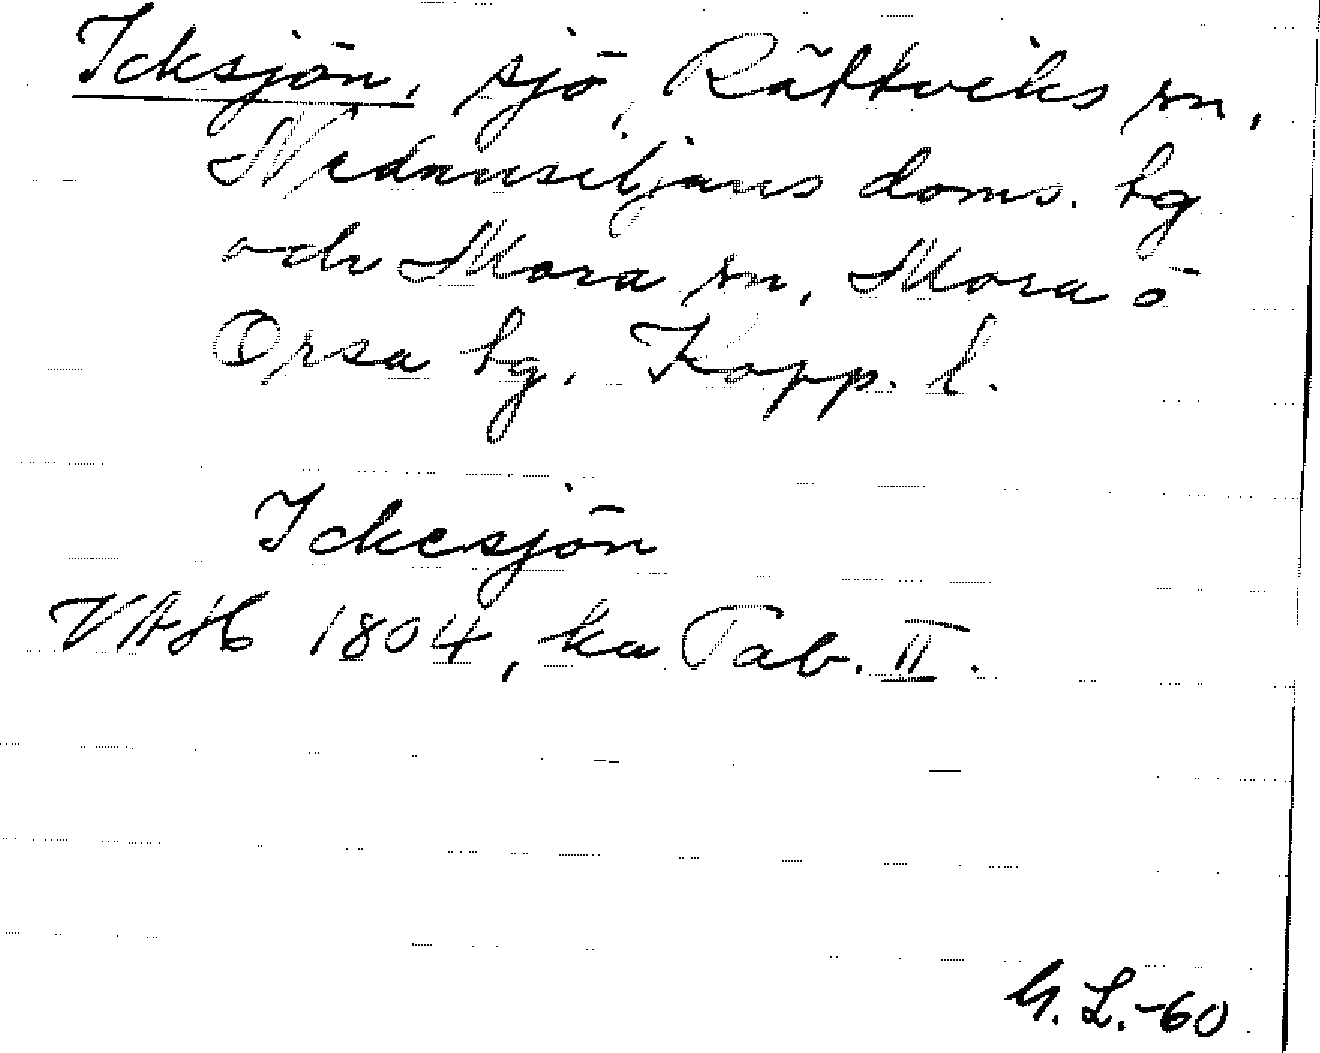 Icksjön, sjö, Rättviks sn,
Nedansiljans doms. hg
och Mora sn, Mora o
Orsa hg. Kopp. l.
Ickesjön
VAH 1804, ka Tab. II.
G. L.-60